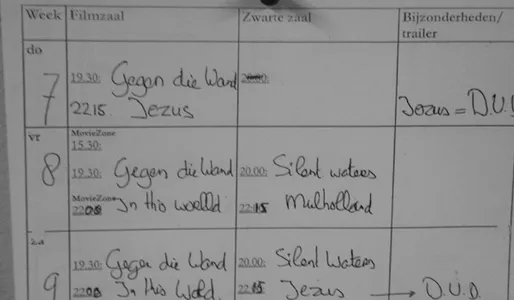 Week Filmzaal Zwarte zaal Bijzonderheden/
trailer
do
7
19.30: Gegen die Wand
2215. Jezus Jezus = D.U.
vr
8
MovieZone
15.30:
19.30: Gegen die Wand 20.00: Silent waters
MovieZone
2200 In this woelld 22:15 Mulholland
za
9
19.30: Gegen die Wand 20.00: Silent Waters
2200 In this Wold. 2215 Jezus → D.U.D.